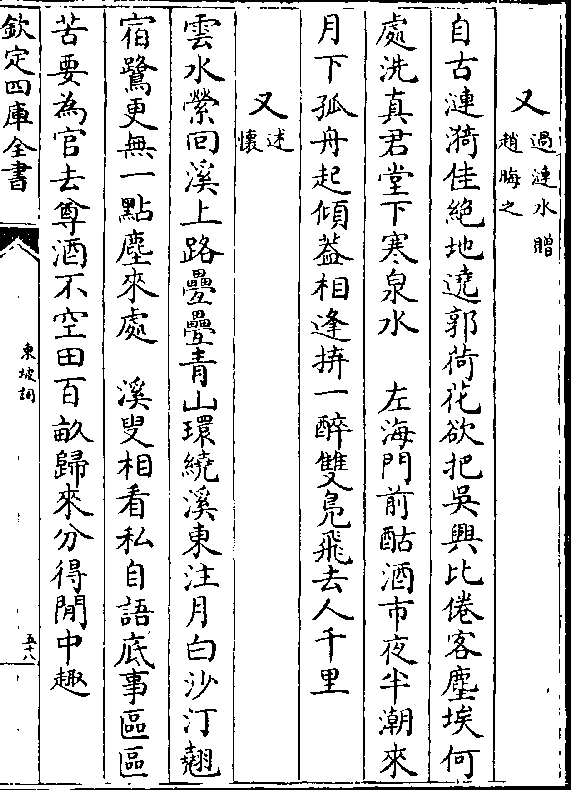 又 過漣水贈趙晦之
自古漣漪佳絶地遶郭荷花欲把吳興比倦客塵埃何
處洗真君堂下寒泉水　左海門前酤酒市夜半潮來
月下孤舟起傾蓋相逢拚一醉雙鳬飛去人千里
又 述懷
雲水縈回溪上路疊疊青山環繞溪東注月白沙汀翹
宿鷺更無一點塵來處　溪叟相看私自語底事區區
苦要為官去尊酒不空田百畝歸來分得閒中趣
欽定四庫全書
東坡詞
五十八